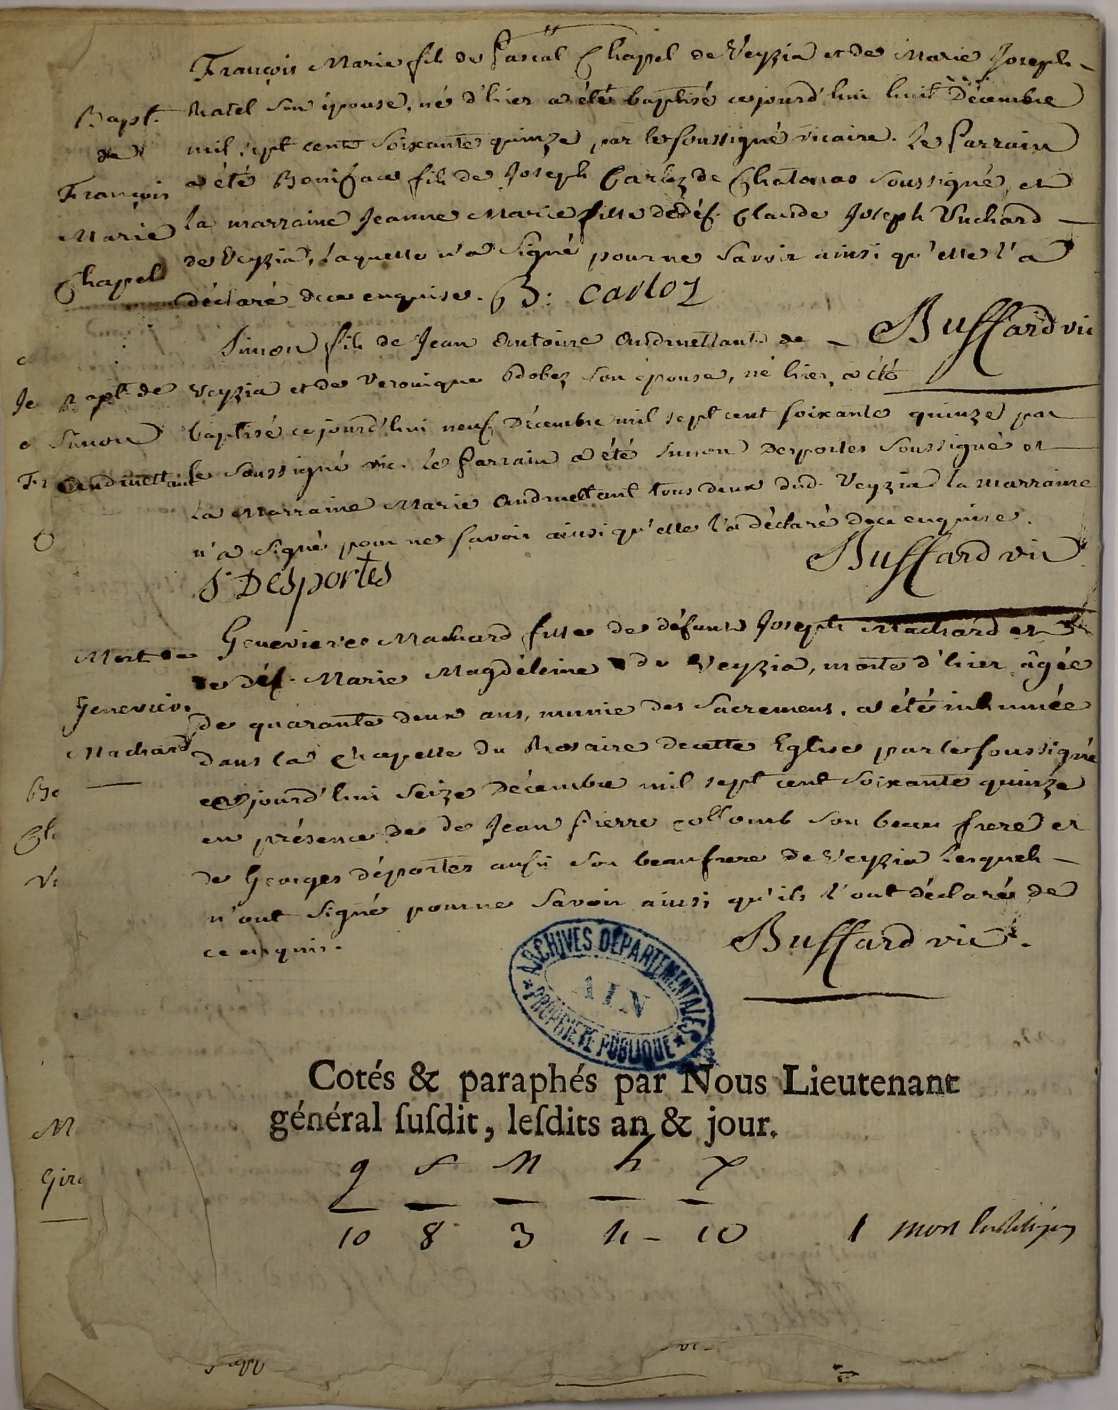 François Marie fils de Pascal Chapel de Veyzia et de Marie Joseph
Bapt. de François Marie Chapel
Matel son épouse, né d'hier a été baptisé cejourd'hui huit Décembre
mil sept cent soixante quinze par le soussigné vicaire. Le Parrain
a été Boniface fils de Joseph Carloz de Chatonas soussigné, et
la marraine Jeanne Marie fille de déf. Claude Joseph Vuchard
de Veyzia, laquelle n'a signé pour ne savoir ainsi qu'elle l'a
déclaré de ce enquise. B: Carloz
Buffard vic
Simon fils de Jean Antoine Andmettant de
Bapt. de Simon Andmettant
Veyzia et de Veronique Bobez son épouse, né hier, a été
baptisé cejourd'hui neuf Décembre mil sept cent soixante quinze par
le soussigné vic. Le Parrain a été Simon Desportes soussigné et
La Marraine Marie Andmettant tous deux dud. Veyzia la marraine
n'a signé pour ne savoir ainsi qu'elle l'a déclaré de ce enquise.
S. Desportes
Buffard vic
Genevieve Machard fille de défunt Joseph Machard et
Mort de Genevieve Machard
de déf. Marie Magdeleine de Veyzia, morte d'hier âgée
de quarante deux ans, munie des Sacremens, a été inhumée
dans la Chapelle du Rosaire de cette Eglise par le soussigné
cejourd'hui seize Décembre mil sept cent soixante quinze
en présence de de Jean Pierre Collomb son beau frere et
de Georges déportes aussi son beaufrere de Veyzia lesquels
n'ont signé pour ne savoir ainsi qu'ils l'ont déclaré de
ce enquis.
Buffard vic.
ARCHIVES DÉPARTEMENTALES
AIN
PROPRIÉTÉ PUBLIQUE
Cotés & paraphés par Nous Lieutenant
général ſuſdit, leſdits an & jour.
g s M h
10 8 3 11 - 10 1 mort